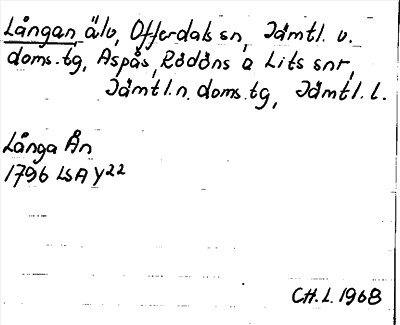 Långan, älv, Offerdals sn, Jämtl. v.
doms.tg, Aspås, Rödöns o Lits snr,
Jämtl.n. doms.tg, Jämtl. l.
Långa Ån
1796 LSA Y22
CH.L. 1968